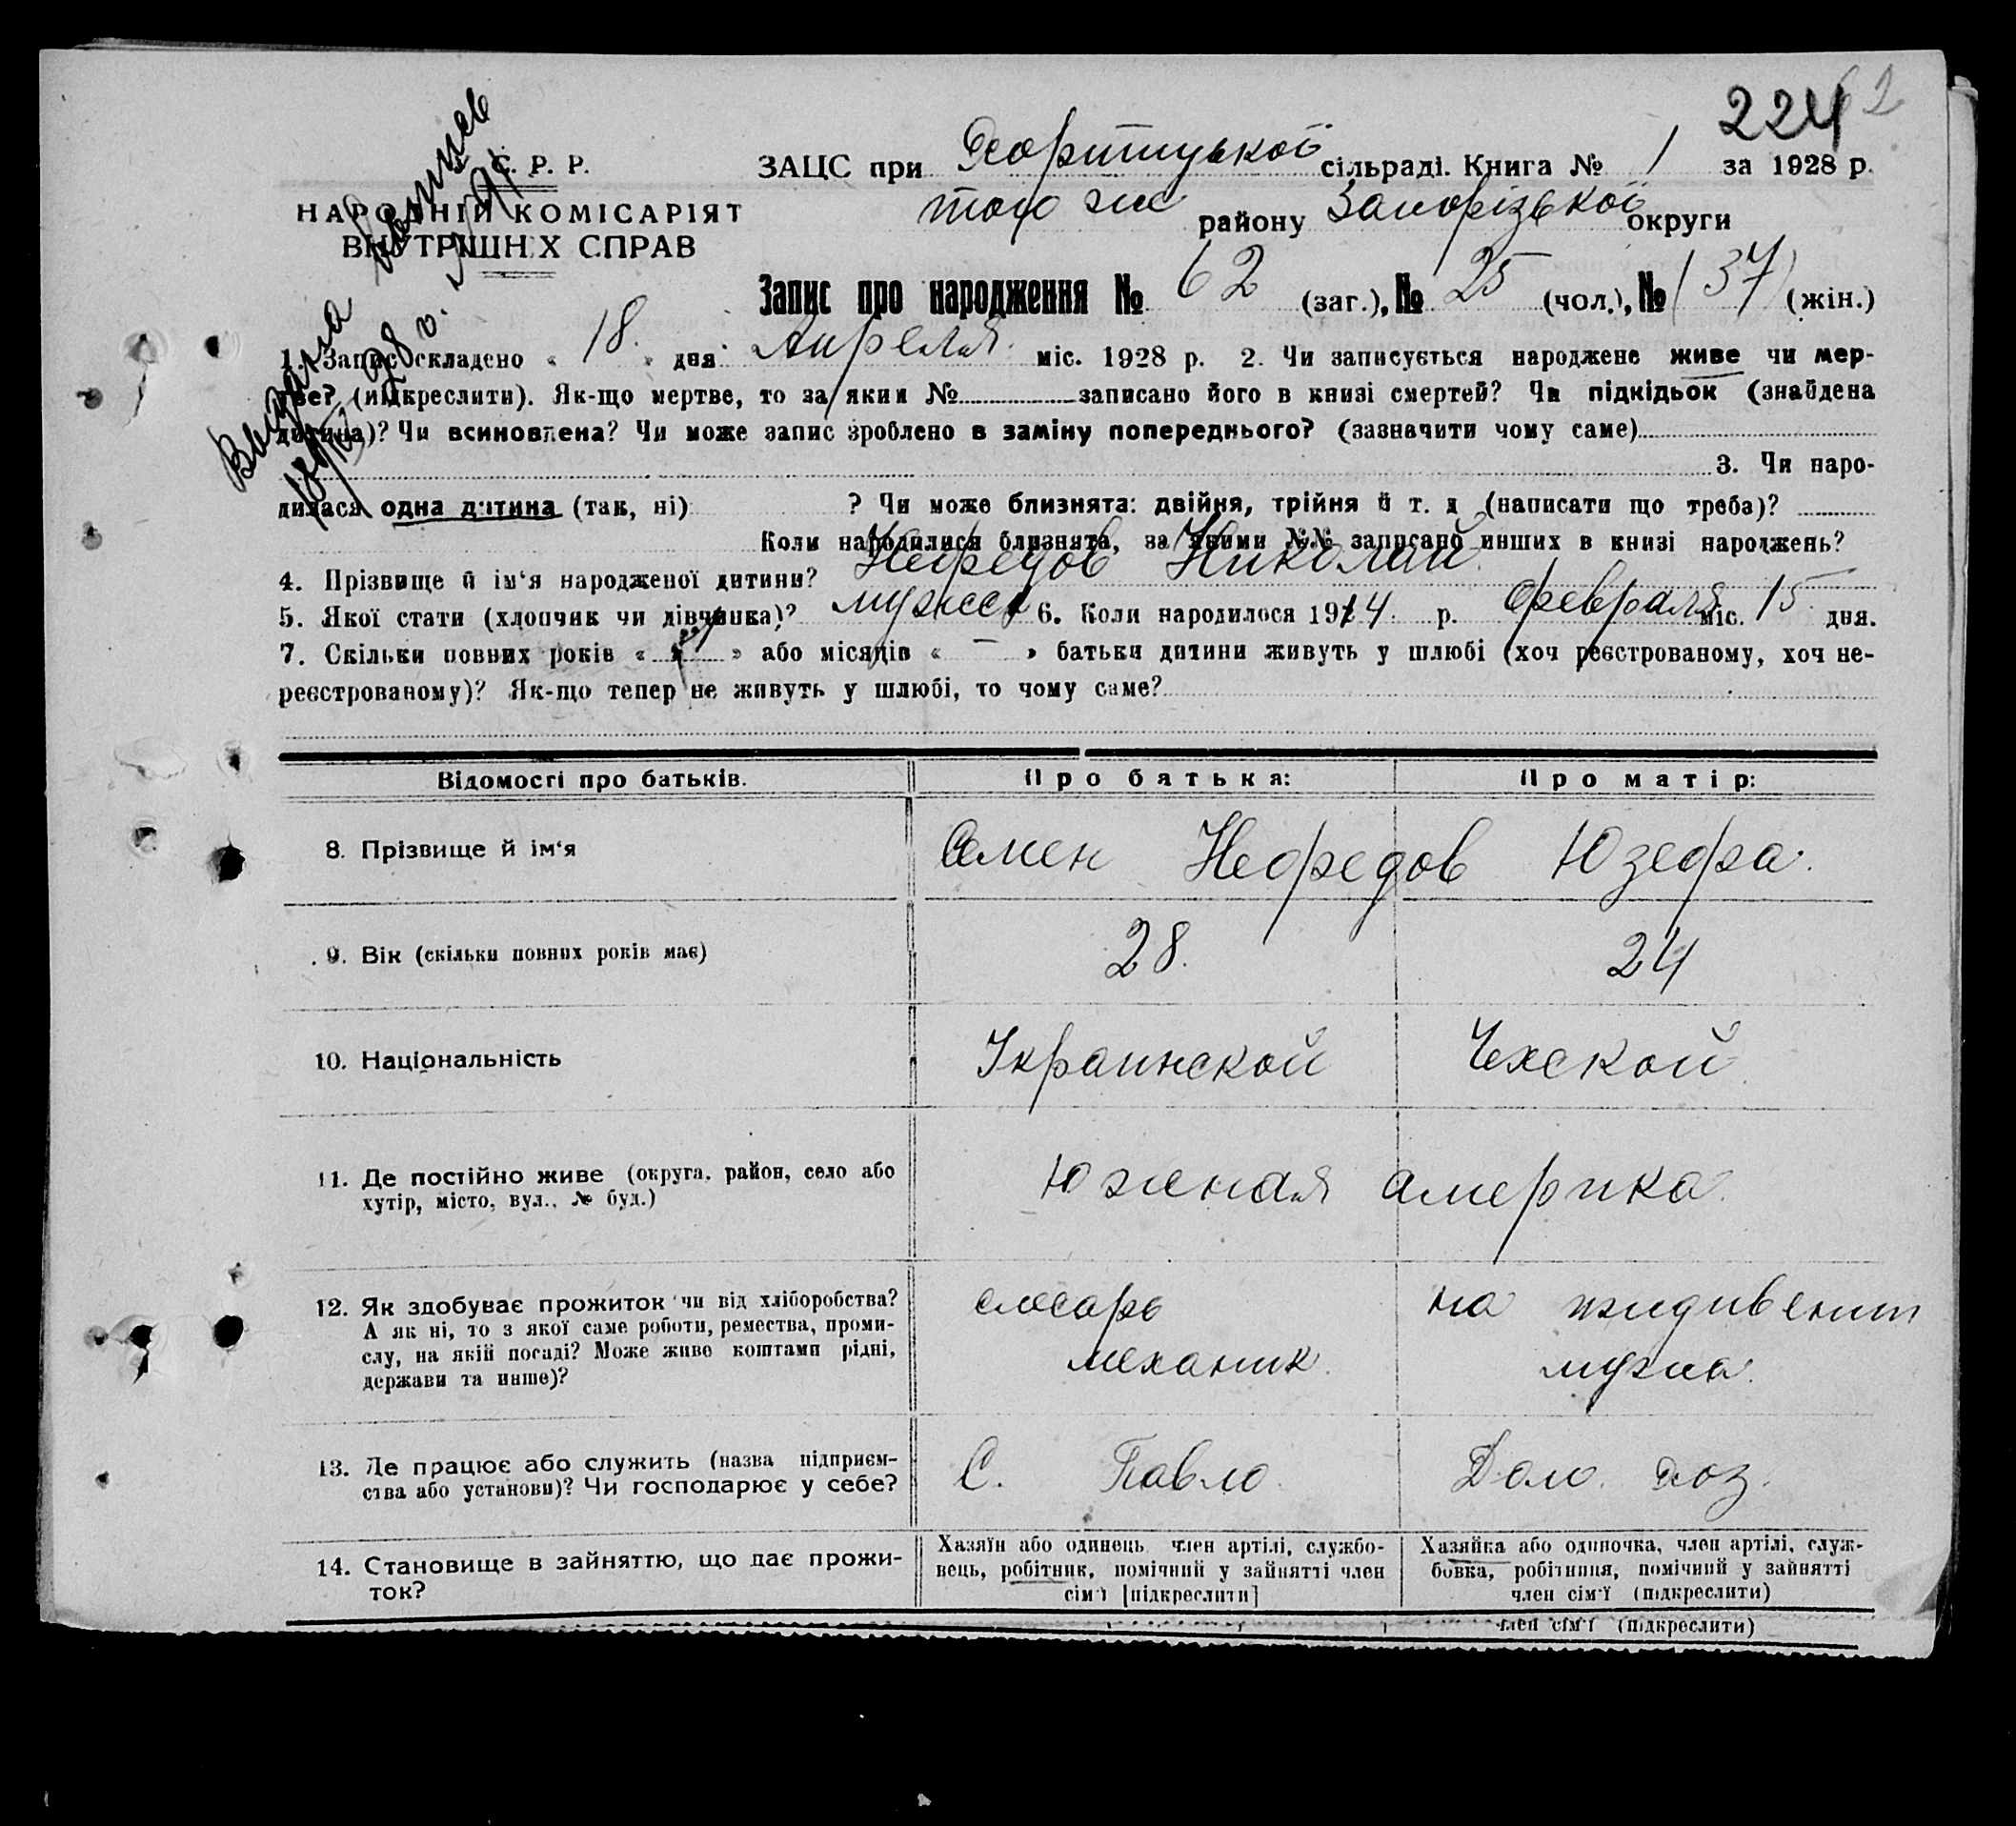 224
62
С. Р. Р.
НАРОДНІЙ КОМІСАРІЯТ
ВНУТРІШНІХ СПРАВ
Видана
ЗАЦС при Хортицької сільраді. Книга № 1 за 1928 р.
того же району Запорізької округи
Запис про народження № 62 (заг.), № 25 (чол.), № (37) (жін.)
1. Запис складено « 18. » дня Апреля. міс. 1928 р. 2. Чи записується народжене живе чи мер-
тве? (підкреслити). Як-що мертве, то за яким № записано його в книзі смертей? Чи підкідьок (знайдена
дитина)? Чи всиновлена? Чи може запис зроблено в заміну попереднього? (зазначити чому саме)
3. Чи наро-
дилася одна дитина (так, ні) ? Чи може близнята: двійня, трійня й т. д (написати що треба)?
Коли народилися близнята, за якими №№ записано инших в книзі народжень?
4. Прізвище й ім'я народженої дитини? Нефедов Николай.
5. Якої стати (хлопчик чи дівчинка)? мужск 6. Коли народилося 1914. р. Февраля міс. 15 дня.
7. Скільки повних років « » або місяців « — » батьки дитини живуть у шлюбі (хоч реєстрованому, хоч не-
реєстрованому)? Як-що тепер не живуть у шлюбі, то чому саме?
Відомості про батьків. Про батька: Про матір:
8. Прізвище й ім'я Семен Нефедов Юзефа.
9. Вік (скільки повних років має) 28. 24
10. Національність Украинской Чехской
11. Де постійно живе (округа, район, село або
хутір, місто, вул., № буд.) Южная америка.
12. Як здобуває прожиток чи від хліборобства?
А як ні, то з якої саме роботи, ремества, проми-
слу, на якій посаді? Може живе коштами рідні,
держави та инше)? слесарь механик. на иждивении мужа.
13. Де працює або служить (назва підприєм-
ства або установи)? Чи господарює у себе? С. Павло. Дом. хоз.
14. Становище в зайняттю, що дає прожи-
ток?
Хазяїн або одинець член артілі, службо-
вець, робітник, помічний у зайнятті член
сім'ї [підкреслити]
Хазяйка або одиночка, член артілі, служ-
бовка, робітниця, помічний у зайнятті
член сім'ї (підкреслити)
член сім'ї (підкреслити)